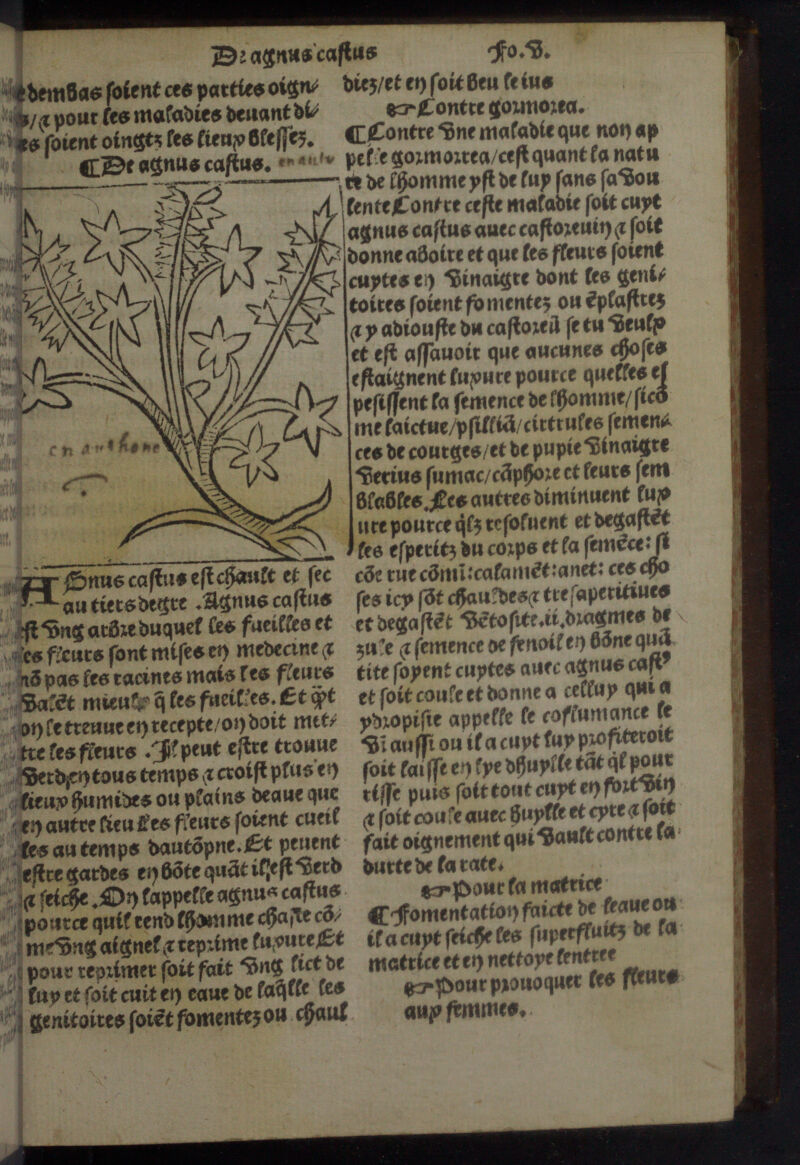 De agnus castus Fo.V.
dembas soient ces parties oign⸗
pour les maladies deuant di⸗
soient oingtz les lieux blessez.
¶ De agnus castus.
en anthone
AGnus castus est chault et sec
au tiers degre .Agnus castus
est vng arbre duquel les fueilles et
les fleurs sont mises en medecine ⁊
nō pas les racines mais les fleurs
valēt mieulx q̄ les fueilles. Et qāt
on le treuue en recepte/on doit met⸗
tre les fleurs .Il peut estre trouue
verd en tous temps ⁊ croist plus en
lieux humides ou plains deaue que
en autre lieu Les fleurs soient cueil
les au temps dautōpne. Et peuent
estre gardes en bōte quāt il est verd
⁊ seiche. On lappelle agnus castus
pource quil rend lhomme chaste cō⸗
me vng aignel ⁊ reprime luxure Et
pour reprimer soit fait vng lict de
luy et soit cuit en eaue de laq̄lle les
genitoires soiēt fomentez ou chaul
diez/et en soit beu le ius
☞ Contre gormorea.
¶ Contre vne maladie que non ap
pelle gormorrea/cest quant la natu
re de lhomme yst de luy sans sa vou
lente Contre ceste maladie soit cuyt
agnus castus auec castoreum ⁊ soit
donne a boire et que les fleurs soient
cuytes en vinaigre dont les geni⸗
toires soient fomentez ou ēplastrez
⁊ y adiouste du castoreū se tu veulx
et est assauoir que aucunes choses
estaignent luxure pource quelles es
pesissent la semence de lhomme/sicō
me laictue/psilliā/citrules semen⸗
ces de courges/et de pupie vinaigre
verius sumac/cāphore et leurs sem
blables. Les autres diminuent lux
ure pource q̄lz resoluent et degastēt
les esperitz du corps et la semēce: si
cōe rue cōmī:calamēt:anet: ces cho
ses icy sōt chauldes⁊ tresaperitiues
et degastēt vētosite.ii.dragmes de
iule ⁊ semence de fenoil en bōne quā
tite soyent cuytes auec agnus cast9
et soit coule et donne a celluy qui a
ydropisie appelle le coflumance le
vi aussi ou il a cuyt luy profiteroit
soit laisse en lye dhuylle tāt q̄l pour
risse puis soit tout cuyt en fort vin
⁊ soit coule auec huylle et cyre ⁊ soit
fait oignement qui vault contre la
durte de la rate.
☞ Pour la matrice
¶ Fomentation faicte de leaue ou
il a cuyt seiche les superfluitz de la
matrice et en nettoye lentree
☞ Pour prouoquer les fleurs
aux femmes.